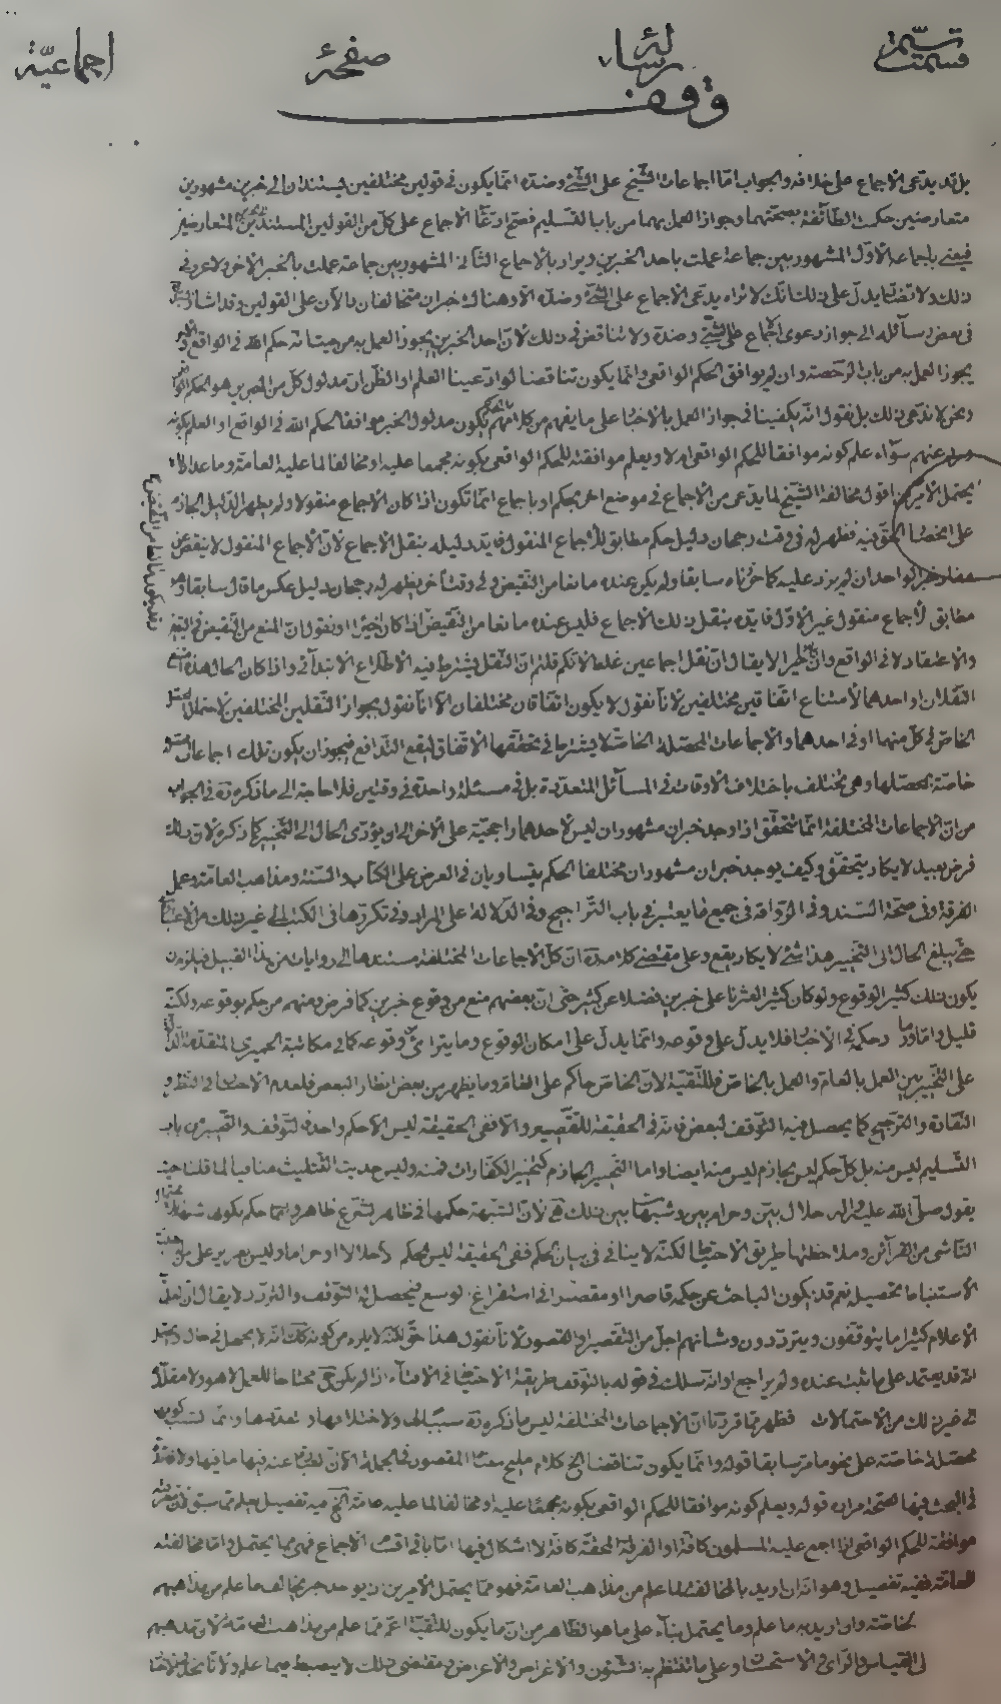 قسمت تسيمة رسالة صفحة اجماعيّة
وقف
بل قد يدعى الاجماع على خلافه والجواب امّا اجماعات الشيخ على الشئ وضده انما يكون في قولين مختلفين يستندان الى خبرين مشهورين
متعارضين حكمت الطائفة بصحتهما وجواز العمل بهما من باب التسليم فصح ادعاء الاجماع على كل من القولين المستندين المتعارضين
فيعنى باجماعه الاول المشهور بين جماعة عملت باحد الخبرين ويراد بالاجماع الثانى المشهور بين جماعة عملت بالخبر الآخر ولا عروفى
ذلك ولا تضاد يدل على ذلك انك لا تراه يدعى الاجماع على الشئ وضده الا وهناك خبران متخالفان دالان على القولين وقد اشار
فى بعض رسائله الى جواز دعوى اجماع على الشئ وضده ولا تناقض فى ذلك لان احد الخبرين يجوز العمل به من حيث انه حكم الله فى الواقع
يجوز العمل به من باب الرخصة وان لم يوافق الحكم الواقعى وانما يكون تناقضا لو ادعينا العلم او الظن ان مدلول كل من الخبرين هو الحكم
ونحن لا ندعى ذلك بل نقول انه يكفينا فى جواز العمل بالاخبار على ما يفهم من كلامهم يكون مدلول الخبر موافقا لحكم الله فى الواقع او العلم بكونه
عنهم سواء علم كونه موافقا للحكم الواقعى ام لا ويعلم موافقته للحكم الواقعى بكونه مجمعا عليه او مخالفا لما عليه العامة وما عدا ذلك
يحتمل الامرين اقول مخالفة الشيخ لما يدعى من الاجماع فى موضع اخر بحكم او باجماع انما تكون اذا كان الاجماع منقولا ولم يظهر الدليل الجازم
على الحق فيه فظهر له فى وقت رجحان دليل حكم مطابق للاجماع المنقول فايد دليله بنقل الاجماع لان الاجماع المنقول لا ينقص عن
الواحد ان لم يزد عليه كما سابقا ولم يكن عنده مانعا من النقيض وفى وقت آخر يظهر له رجحان دليل عكس ما قال سابقا
مطابق لاجماع منقول غير الاول فايده بنقل ذلك الاجماع فليس عنده مانعا من النقيض اذا كان اخيرا او نقول ان المنع من النقيض فى
والاعتقاد لا فى الواقع لا يقال ان نقل اجماعين غلط لانكم قلتم ان النقل يشترط فيه الاطلاع الابتدائى واذا كان الحال هذه
النقلان او احدهما لامتناع اتفاقين مختلفين لانا نقول لا يكون اتفاقان مختلفان الا انا نقول بجواز النقلين المختلفين لاحتمال
الخاص فى كل منهما او فى احدهما والاجماعات المحصلة الخاصة لا يشترط فى تحققها الاتفاق ليقع التدافع فيجوز ان يكون تلك اجماعات
خاصة لمحصلها وهى تختلف باختلاف الاوقات فى المسائل المتعددة بل فى مسئلة واحدة فى وقتين فلا حاجة الى ما ذكره فى الجواب
من ان الاجماعات المختلفة انما تتحقق اذا وجد خبران مشهوران ليس لاحدهما راجحية على الآخر الى ان يؤدى الحال الى التخيير كما ذكره لان ذلك
فرض بعيد لا يكاد يتحقق وكيف يوجد خبران مشهوران مختلفا الحكم يتساويان فى العرض على الكتاب والسنة ومذاهب العامة وعمل
الفرقة وفى صحة السند وفى الرواة فى جميع ما يعتبر فى باب التراجيح وفى الدلالة على المراد وفى تكررها فى الكتب الى غير ذلك من
حتى يبلغ الحال الى التخيير هذا شئ لا يكاد يقع وعلى مقتضى كلامه ان كل الاجماعات المختلفة مستندها الى روايات من هذا القبيل فيلزم ان
يكون ذلك كثير الوقوع ولو كان كثيرا لعثرنا على خبرين فضلا عن كثير حتى ان بعضهم منع من وقوع خبرين كما فرض ومنهم من حكم بوقوعه ولكنه
قليل واما ورود حكمه فى الاخبار فلا يدل على وقوعه وانما يدل على امكان الوقوع وما يترائى وقوعه كما فى مكاتبة الحميرى المتقدمة
على التخيير بين العمل بالعام والعمل بالخاص فللتقية لان الخاص حاكم على العام وما يظهر من بعض انظار البعض فلعدم الاحاطة فى النظر و
النقادة والترجيح كما يحصل فيه التوقف لبعض فانه فى الحقيقة للتقصير والا ففى الحقيقة ليس الا حكم واحد فالتوقف والتخيير من باب
التسليم ليس منه بل كل حكم ليس بجازم ليس منه ايضا واما التخيير الجازم كتخيير الكفارات فمنه وليس حديث التثليث منافيا لما قلنا حيث
يقول صلى الله عليه واله حلال بين وحرام بين وشبهات بين ذلك لان الشبهة حكمها فى ظاهر الشرع ظاهر
الناشى من القرآئن وملاحظتها طريق الاحتياط لكنه لا ينافى فى بيان الحكم ففى الحقيقة ليس الحكم الا حلالا او حراما وليس بعزيز على من
الاستنباط تحصيله نعم قد يكون الباحث عن حكمه قاصرا او مقصرا فى استفراغ الوسع فيحصل له التوقف والتردد لا يقال ان
الاعلام كثيرا ما يتوقفون ويترددون وشانهم اجل من التقصير او القصور لانا نقول هذا حق لكنه لا يلزم من كونه كذلك انه لا يحصل فى حال
انه قد يعتمد على ما ثبت عنده ولم يراجع او انه سلك فى قوله بالتوقف طريقة الاحتياط فى الافتاء اذا لم يكن محتاجا للعمل لا هو ولا مقلده
الى غير ذلك من الاحتمالات فظهر مما قررنا ان الاجماعات المختلفة ليس ما ذكره سببا لها ولا ختلافها وتعددها وانما السبب
محصلة خاصة على نحو ما مر سابقا قوله وانما يكون تناقضا الخ كلام مليح
فى البحث فيها لصحة مراده قوله ويعلم كونه موافقا للحكم الواقعى بكونه مجمعا عليه او مخالفا لما عليه عامة الخ فيه تفصيل يعلم مما سبق
موافقة للحكم الواقعى اذا اجمع عليه المسلمون كافة او الفرقة المحقة كافة لا اشكال فيها اما باقى اقسام الاجماع فهى مما يحتمل واما مخالفته
للعامة ففيه تفصيل وهو انه ان اريد بالمخالفة لما علم من مذاهب العامة فهو مما يحتمل الامرين ان يوجد خبر يخالف ما علم من مذاهبهم
خاصة وان اريد به ما علم وما يحتمل بناء على ما هو الظاهر من ان ما يكون للتقية اعم مما علم من مذاهب العامة لان مذهبهم
الى القياس والراى والاستحسان وعلى ما تنتظم به الشئون والاغراض والاعراض ومقتضى ذلك لا ينضبط فيما علم ولانا نجد